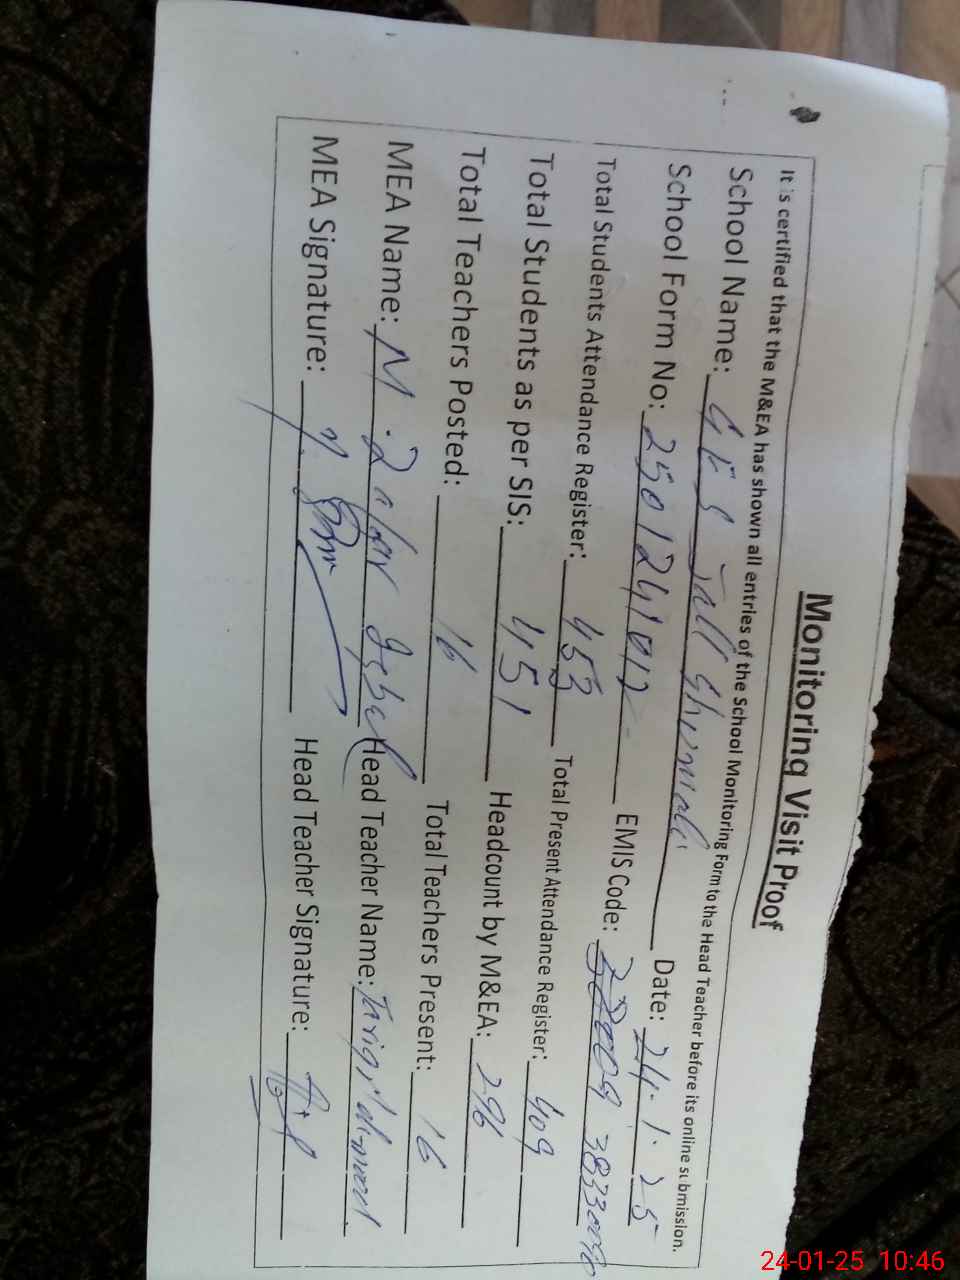 Monitoring Visit Proof
It is certified that the M&EA has shown all entries of the School Monitoring Form to the Head Teacher before its online submission.
School Name: GES Jall Shumali Date: 24.1.25
School Form No: 2501241012 EMIS Code: 38330090
Total Students Attendance Register: 453 Total Present Attendance Register: 409
Total Students as per SIS: 451 Headcount by M&EA: 296
Total Teachers Posted: 16 Total Teachers Present: 16
MEA Name: M. Zafar Iqbal Head Teacher Name: Tariq Mahmood
MEA Signature: Head Teacher Signature:
24-01-25 10:46